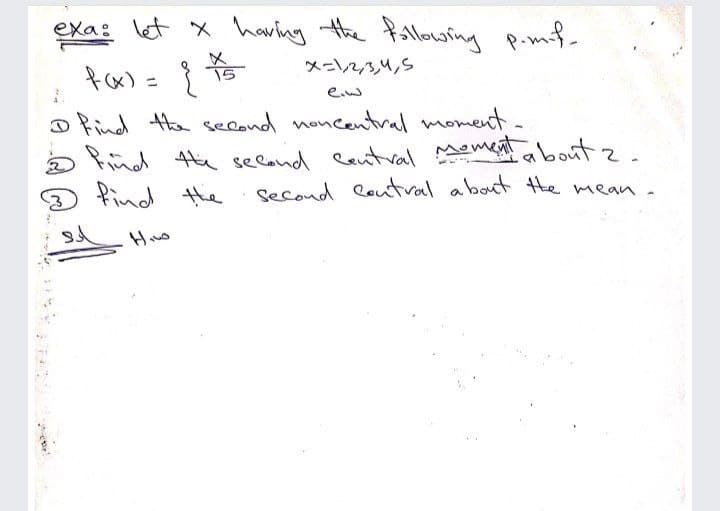 exa: let x having the following p.m.f.
f(x) = { x/15 x=1,2,3,4,5
e.w
① find the second noncentral moment.
② find the second central moment about 2.
③ find the second central about the mean.
sol H.w